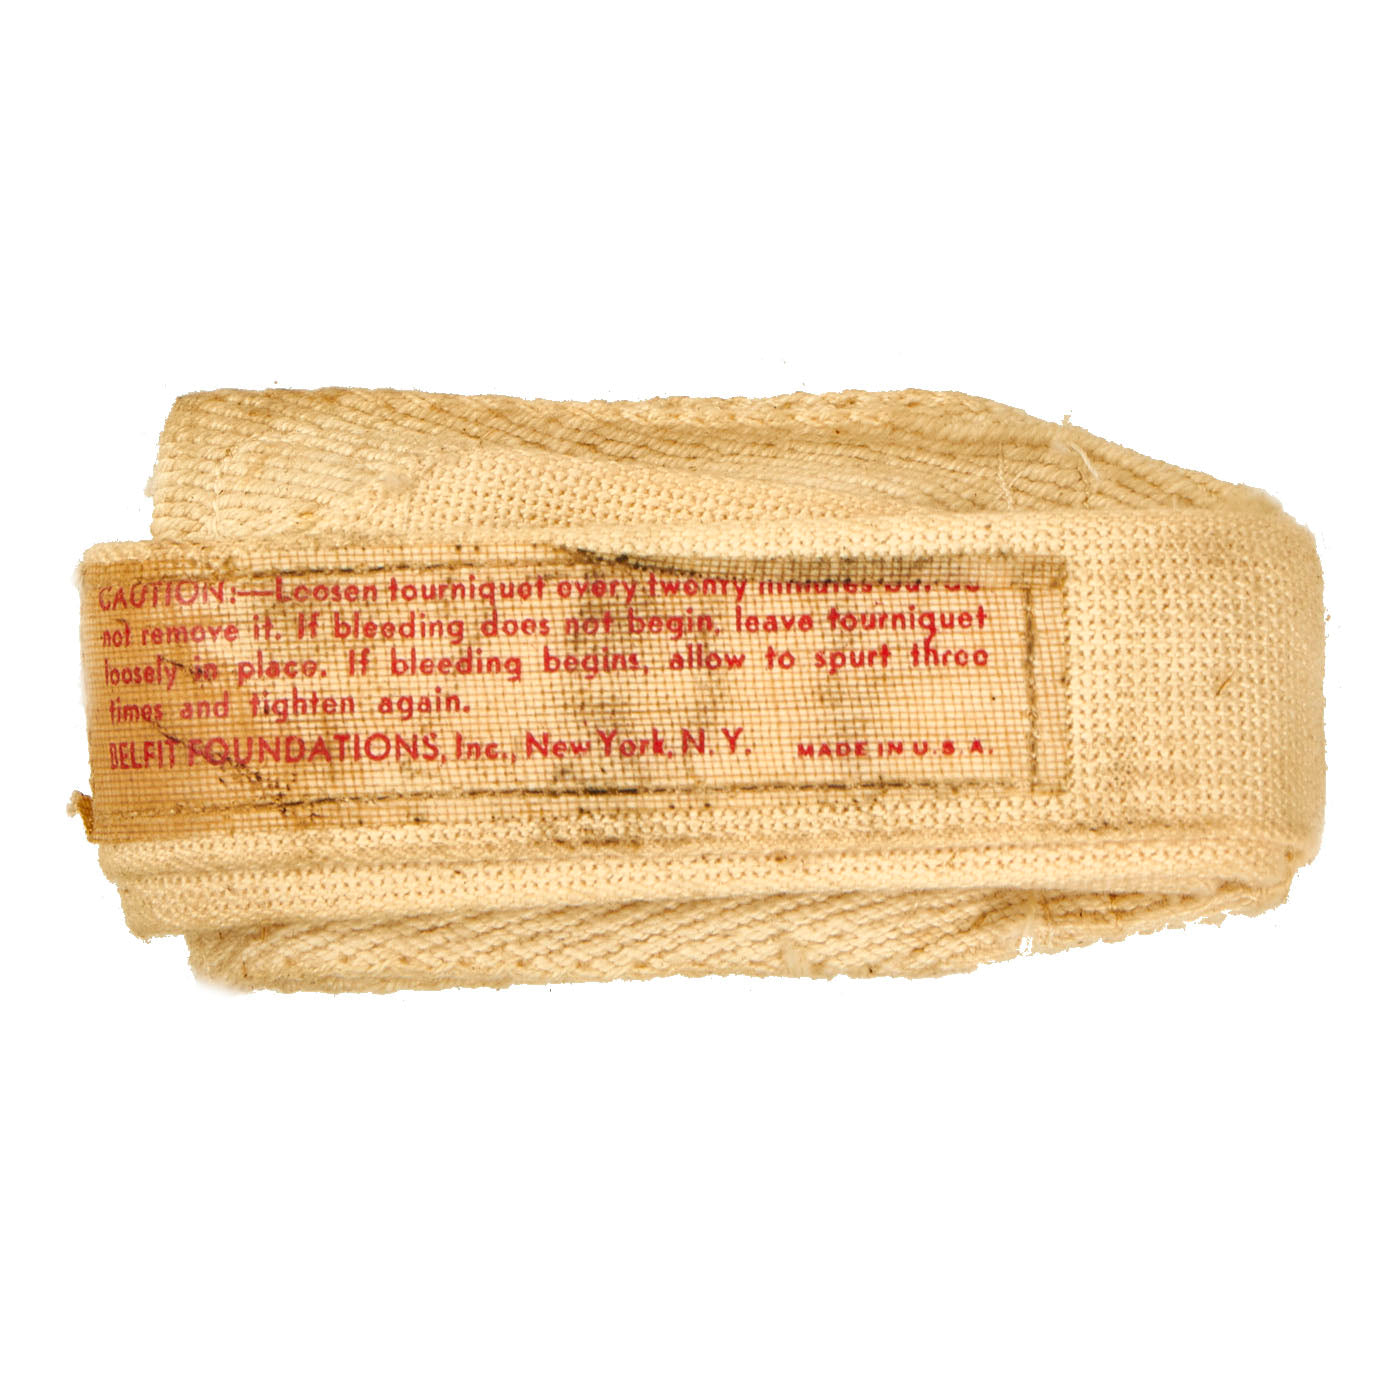 CAUTION:—Loosen tourniquet every twenty minutes but do
not remove it. If bleeding does not begin, leave tourniquet
loosely in place. If bleeding begins, allow to spurt three
times and tighten again.
BELFIT FOUNDATIONS, Inc., New York, N. Y. MADE IN U. S. A.